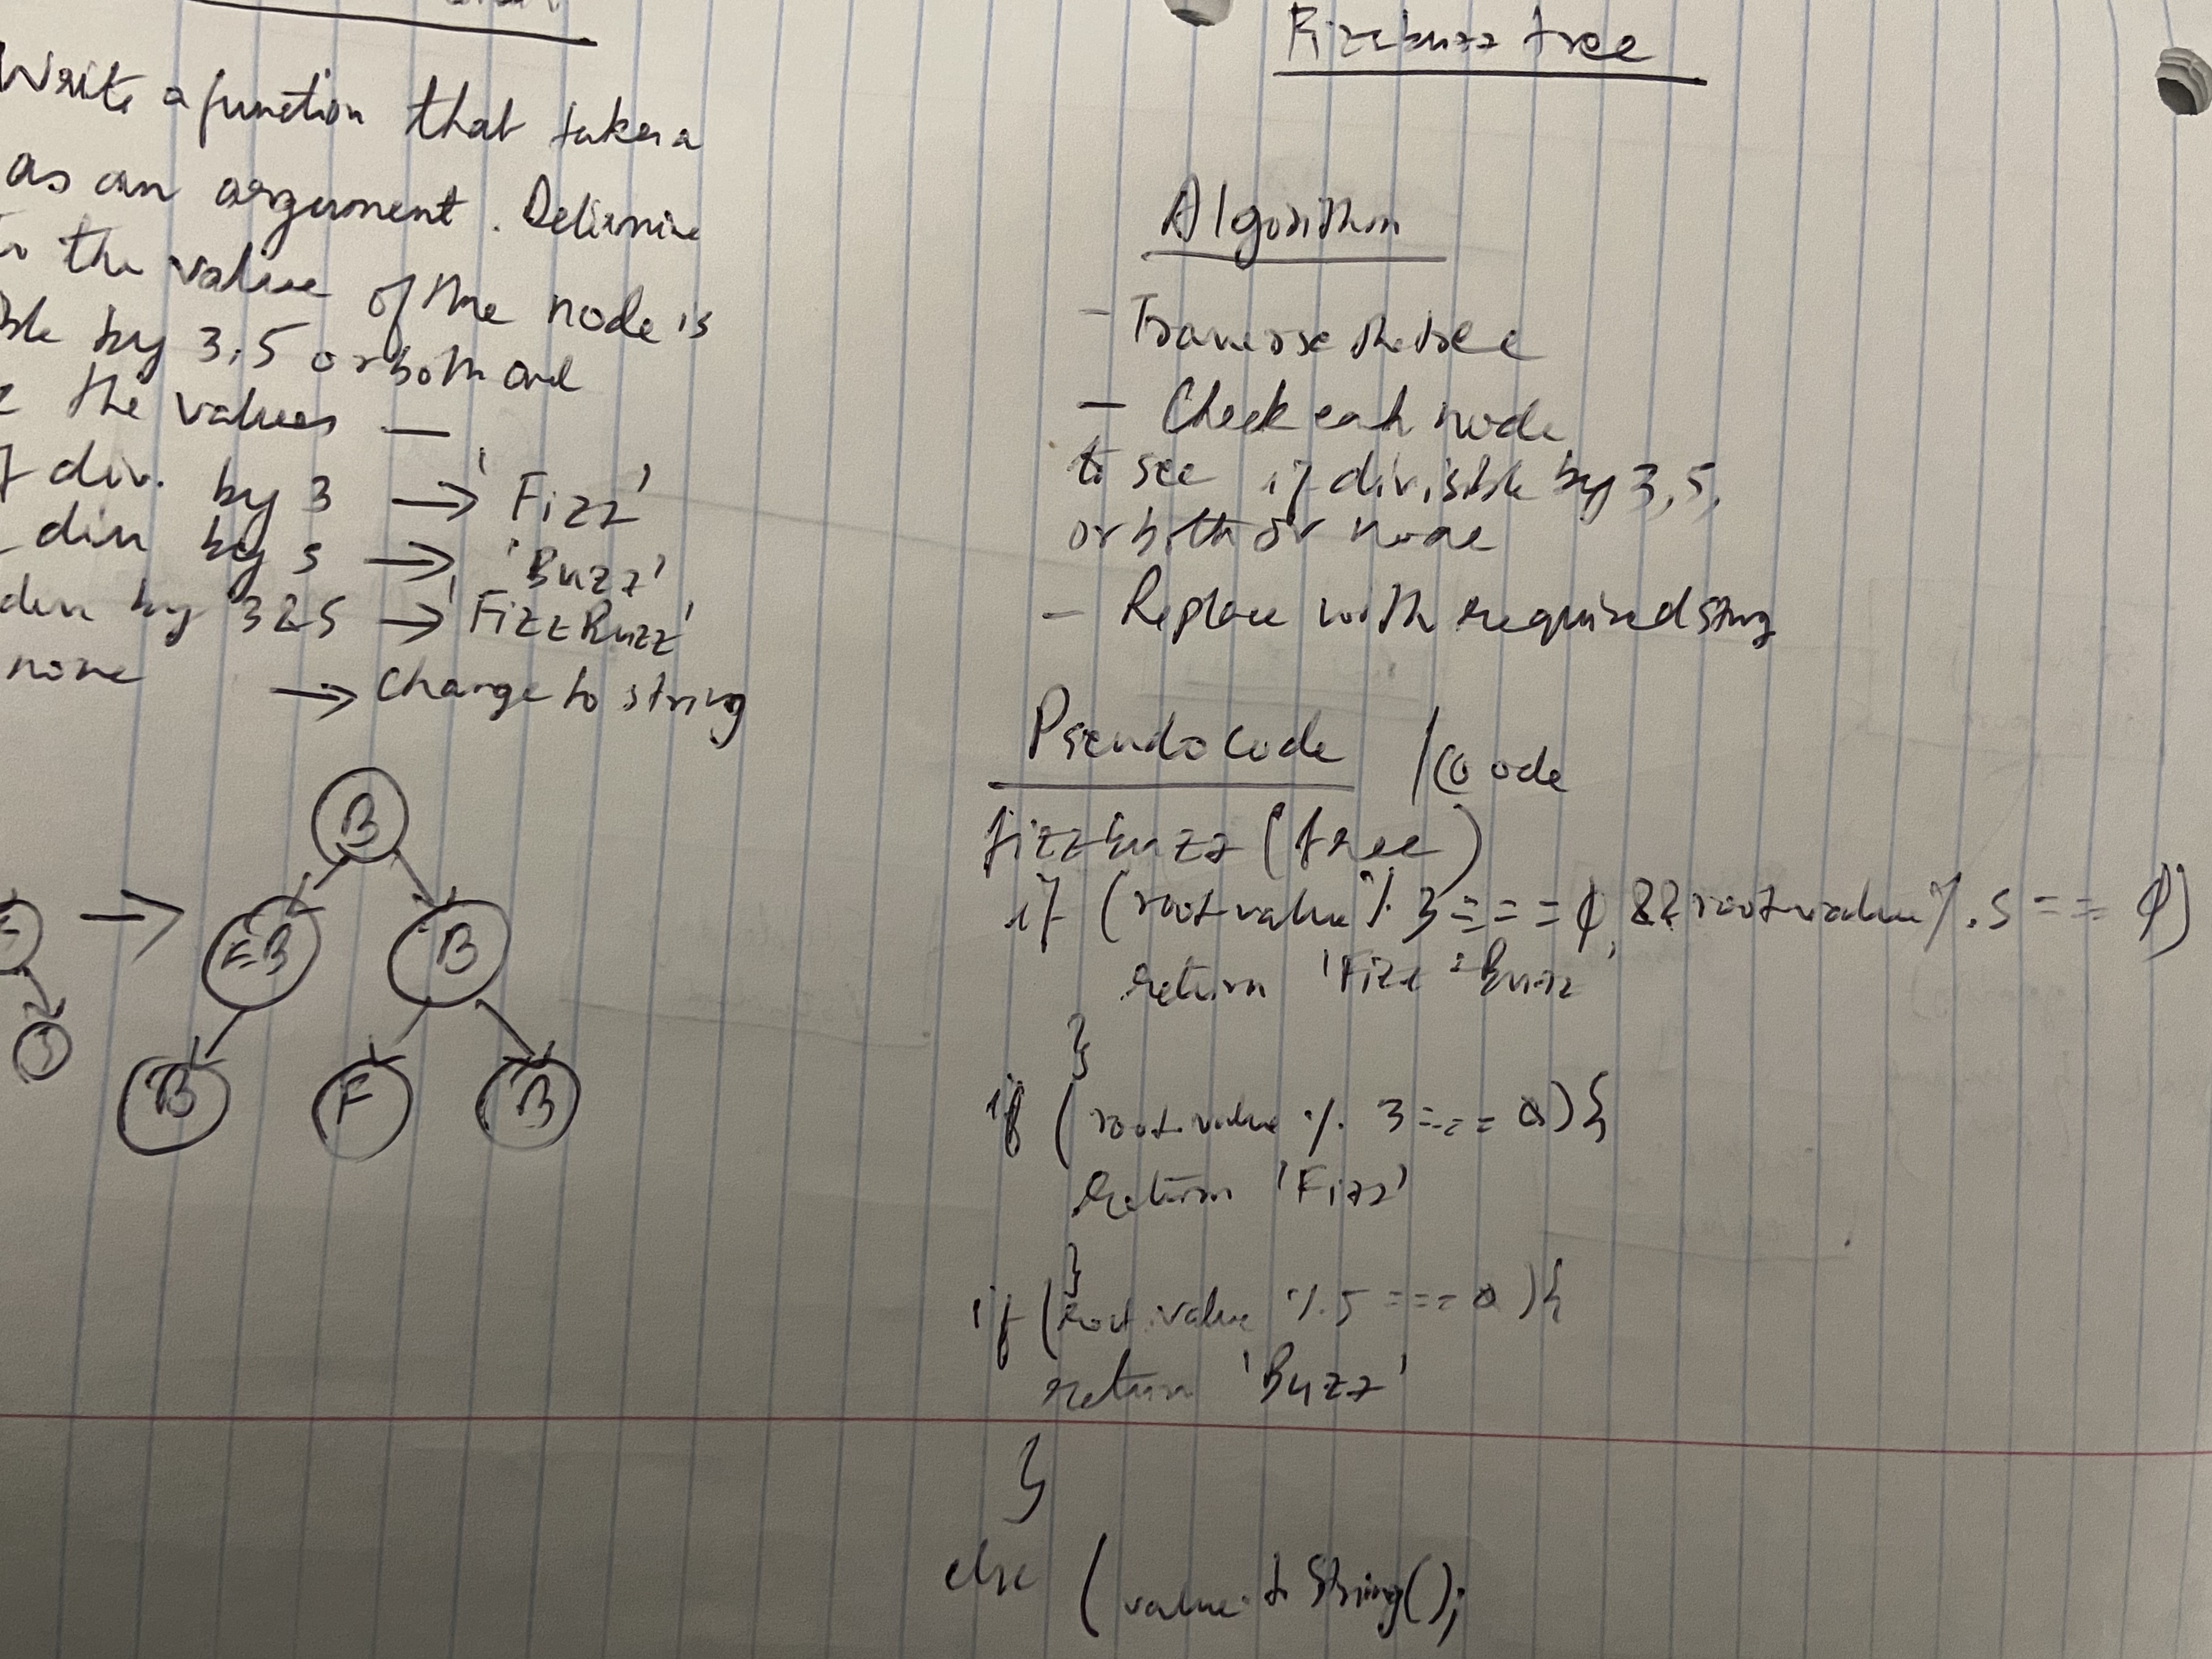 Fizzbuzz tree
Write a function that takes a
as an argument. Determine
the value of the node is
by 3, 5 or both and
the values —
div. by 3 → 'Fizz'
div by 5 → 'Buzz'
div by 3&5 → 'FizzBuzz'
none → Change to string
B
FB B
B F B
Algorithm
- Traverse the tree
- Check each node
to see if divisible by 3, 5,
or both or none
- Replace with required string
Pseudocode / Code
fizzbuzz (tree)
if (root.value % 3 === 0 && root.value % 5 === 0)
return 'Fizz Buzz'
}
if (root.value % 3 === 0) {
return 'Fizz'
}
if (root.value % 5 === 0) {
return 'Buzz'
}
else ( value.toString();